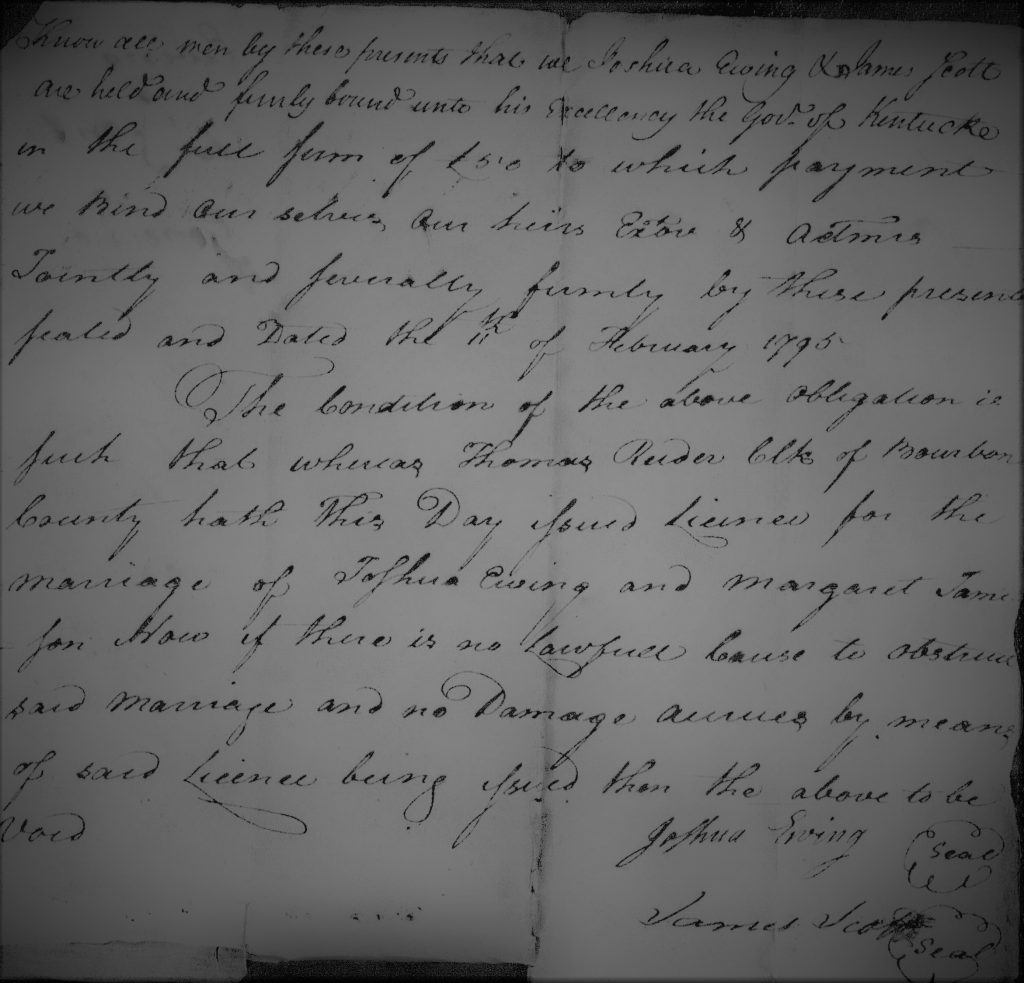 Know all men by these presents that we Joshua Ewing & James Scott
are held and firmly bound unto his Excellency the Govr. of Kentucke
in the full sum of £50 to which payment
we Bind our selves our heirs Extor & Admrs
Jointly and severally firmly by these presents
sealed and Dated the 11th of February 1795
The Condition of the above obligation is
such that whereas Thomas Clk of Bourbon
County hath This Day issued Licence for the
marriage of Joshua Ewing and Margaret Jame
-son Now if there is no Lawfull Cause to obstruct
said marriage and no Damage accrues by means
of said Licence being issued then the above to be
Void
Joshua Ewing Seal
James Scott Seal